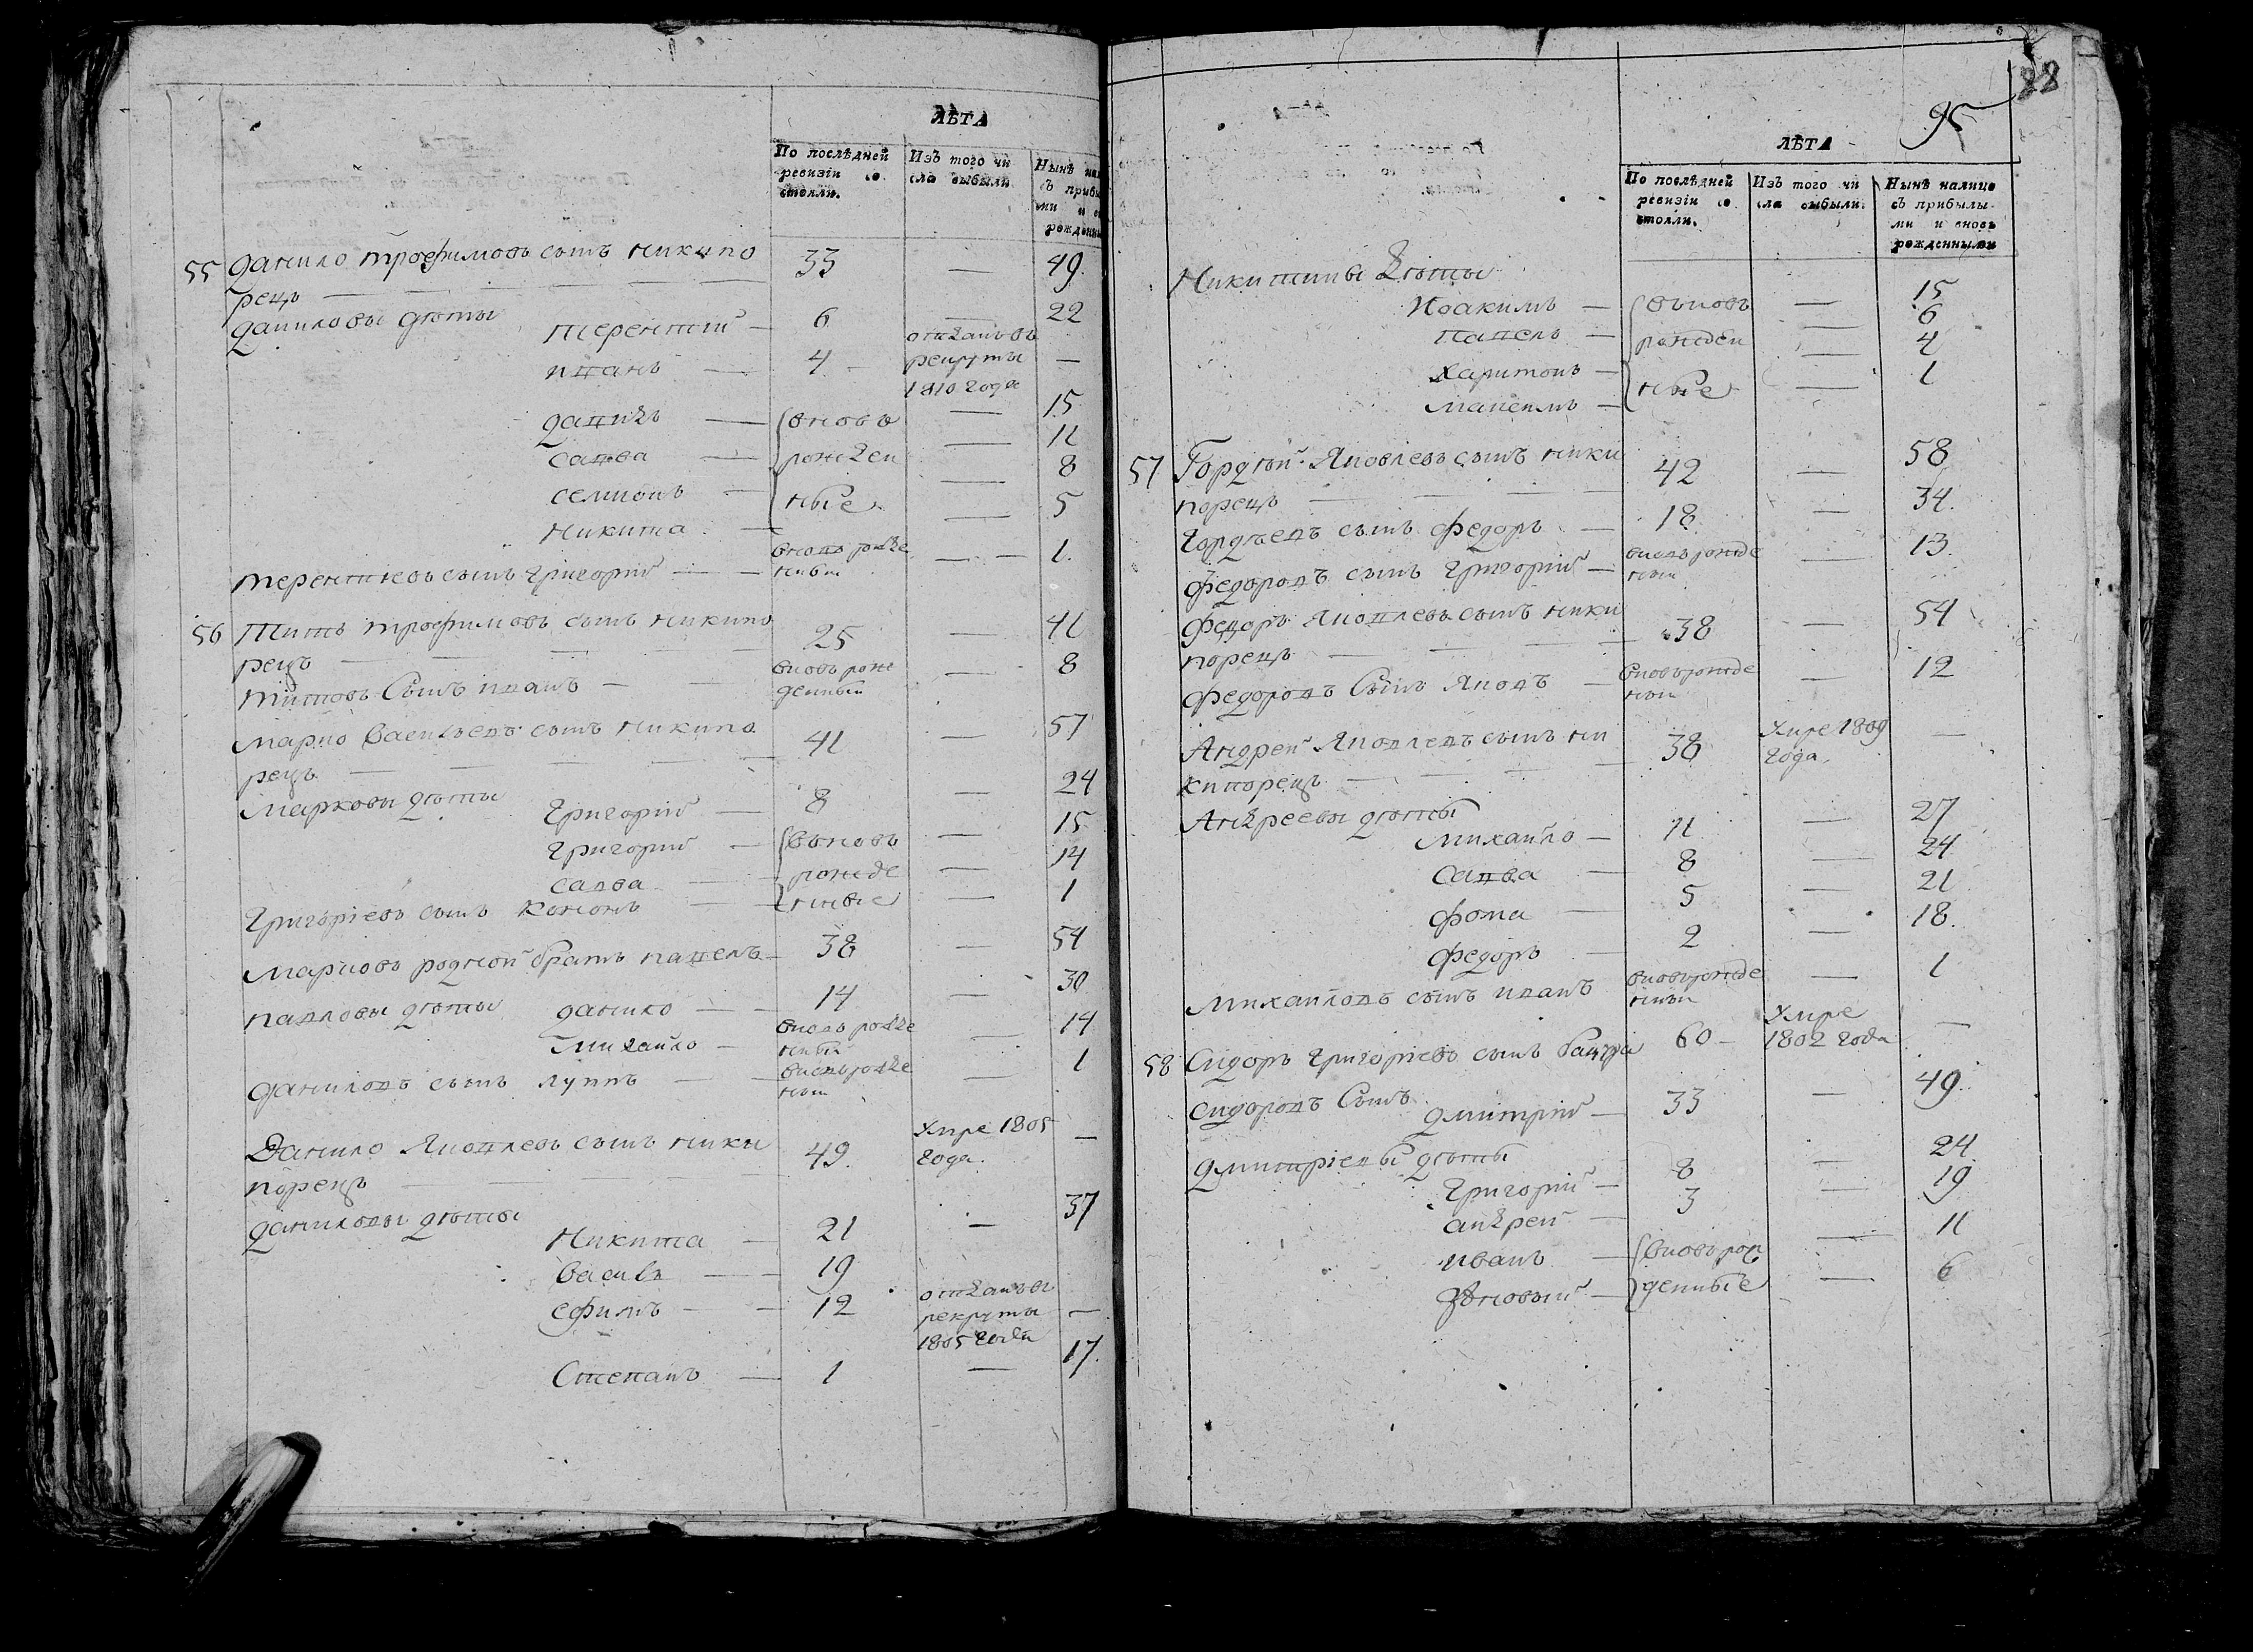 ЛѢТА
По послѣдней ревизіи со стояли.
Изъ того чи сла выбыли
Нынѣ нал съ прибы ми и рожденны
55 Данило трофимовъ сынъ никипо 33 — 49
рецъ
даниловы дѣты
терентий — 6 — 22
иванъ — 4 — отданъ въ рекруты 1810 года —
давидъ — вновь — 15
савва — рожден — 11
семионъ — ные — 8
никита — 5
терентиевъ сынъ григорий — вновь рожде нный — 1
56 Титъ трофимовъ сынъ никипо 25 — 41
рецъ
титовъ сынъ иванъ — вновь рож денный — 8
марко васильевъ сынъ никипо 41 — 57
рецъ
марковы дѣты
григорий — 8 — 24
григорий — вьновь — 15
савва — рожде — 14
григориевъ сынъ кононъ — нные — 1
марковъ родной братъ павелъ — 38 — 54
павловы дѣты данило — 14 — 30
михайло — вновь рожде нный — 14
даниловъ сынъ луппъ — вновь рожде нный — 1
Данило Яковлевъ сынъ ники 49 умре 1805 года —
порецъ
даниловы дѣты
Никита — 21 — 37
василь — 19
ефимъ — 12 отданъ въ рекруты 1805 года —
Степанъ — 1 — 17
88
95
ЛѢТА
По послѣдней ревизіи со стояли.
Изъ того чи сла выбыли
Нынѣ налицо съ прибылы ми и вновь рожденными
Никитины дѣты
Иоакимъ — вьновь — 15
павелъ — рожден — 6
харитонъ — ные — 4
максимъ — 1
57 Гордѣй Яковлевъ сынъ ники 42 — 58
порецъ
гордѣевъ сынъ федоръ — 18 — 34
федоровъ сынъ григорий — вновь рожде нный — 13
федоръ Яковлевъ сынъ ники 38 — 54
порецъ
федоровъ сынъ Яковъ — вновь рожде нный — 12
Андрей Яковлевъ сынъ ни 38 умре 1809 года —
кипорецъ
Андреевы дѣты
михайло — 11 — 27
савва — 8 — 24
фома — 5 — 21
федоръ — 2 — 18
михайловъ сынъ иванъ вновь рожде нный — 1
58 Сидоръ григориевъ сынъ 60 — умре 1802 года —
сидоровъ сынъ
дмитрий — 33 — 49
дмитриевы дѣты
григорий — 8 — 24
андрей — 3 — 19
иванъ — вновь рож — 11
— денные — 6